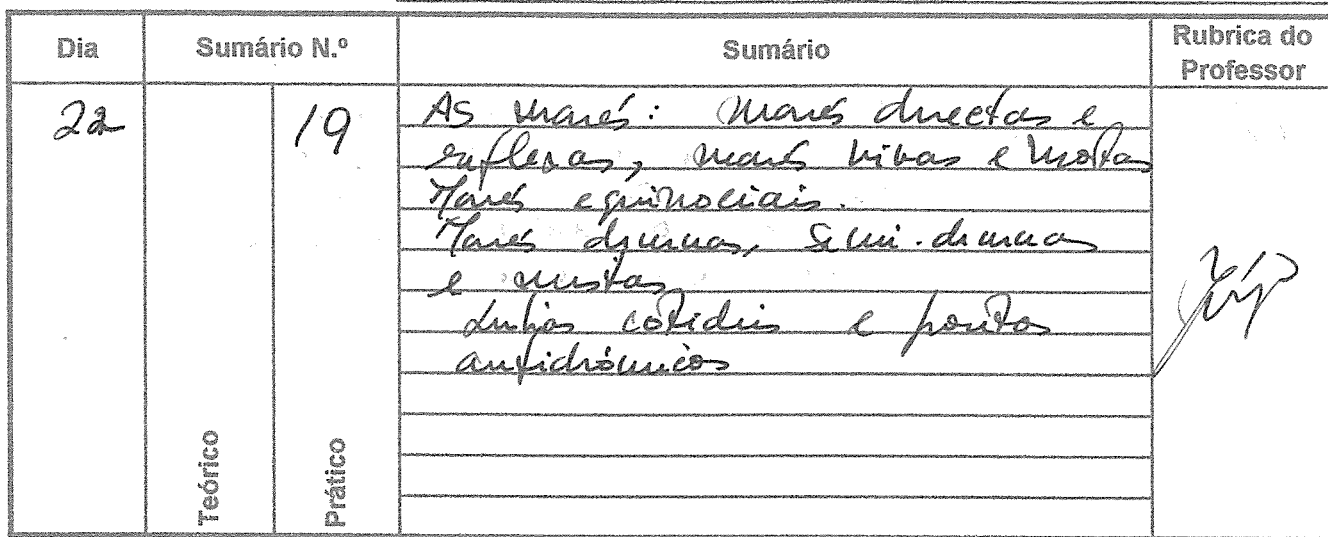 Dia
Sumário N.º
Sumário
Rubrica do
Professor
22
19
As marés: Marés directas e
reflexas, marés vivas e mortas
Marés equinociais.
Marés diurnas, semi-diurnas
e mistas
Linhas cotidais e pontos
anfidrómicos
Teórico
Prático